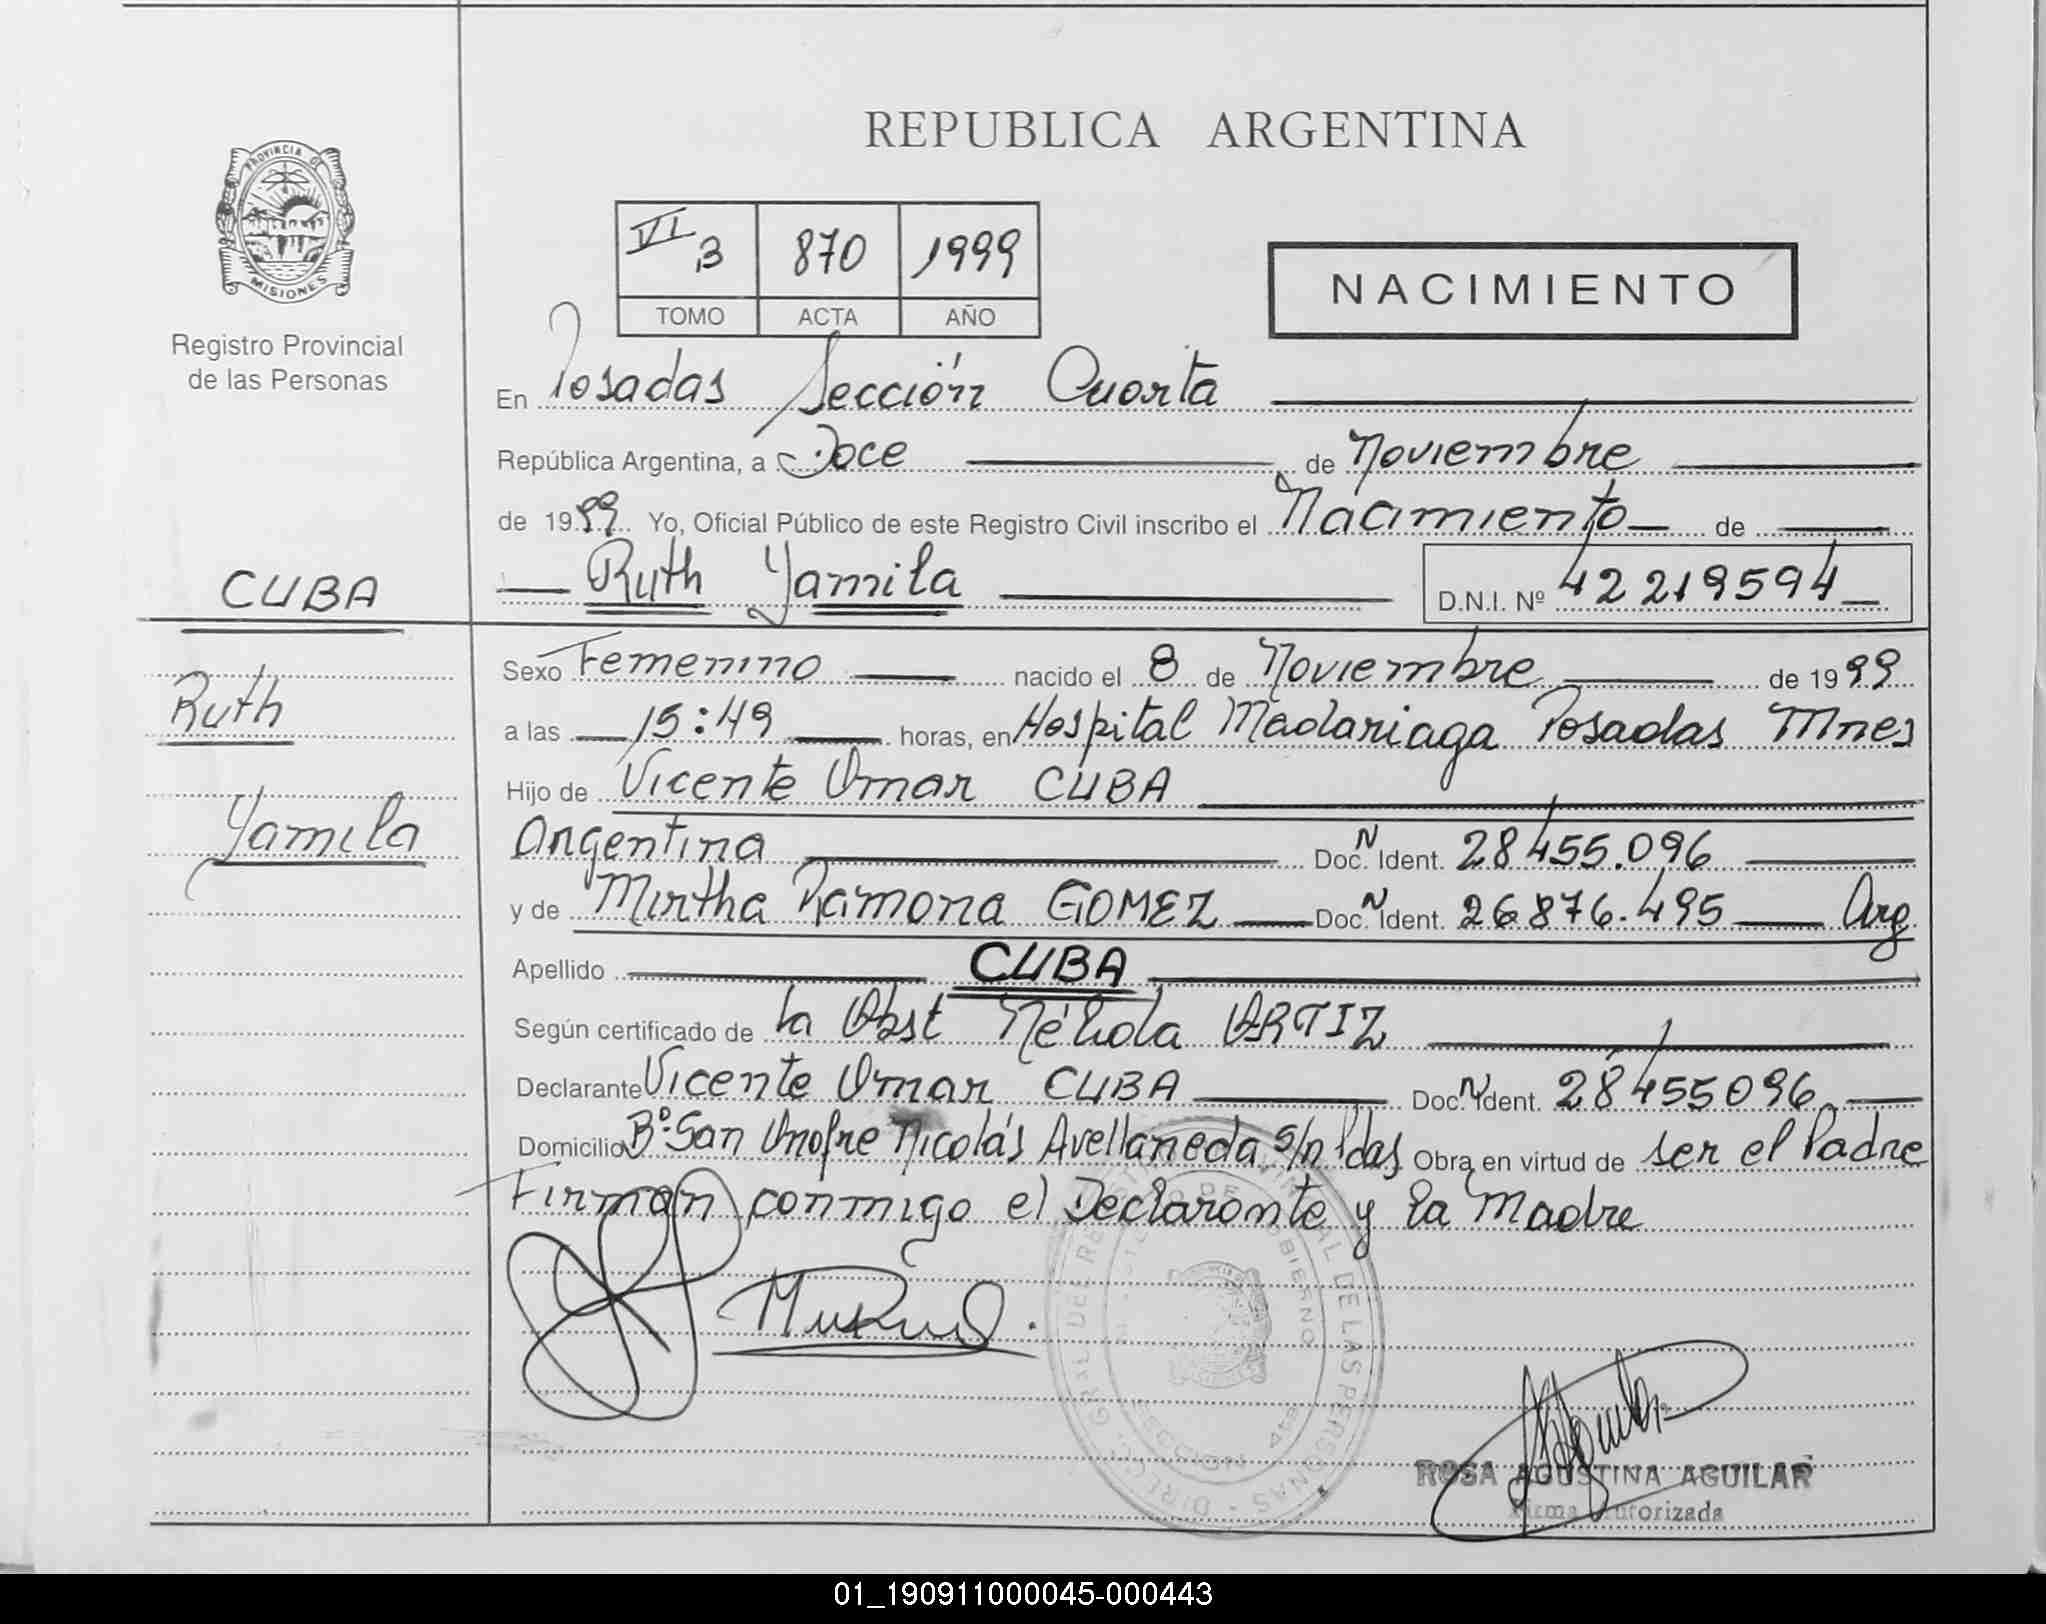 REPUBLICA ARGENTINA
PROVINCIA DE
MISIONES
Registro Provincial
de las Personas
VI 3 870 1999
TOMO ACTA AÑO
NACIMIENTO
En Posadas Sección Cuarta
República Argentina, a Doce de Noviembre
de 1999 Yo, Oficial Público de este Registro Civil inscribo el Nacimiento de
Ruth Yamila D.N.I. Nº 42219594
CUBA
Ruth
Yamila
Sexo Femenino nacido el 8 de Noviembre de 1999
a las 15:49 horas, en Hospital Madariaga Posadas Mnes
Hijo de Vicente Omar CUBA
Argentina Doc. N Ident. 28455.096
y de Mirtha Ramona GOMEZ Doc. N Ident. 26876.495 Arg
Apellido CUBA
Según certificado de la Obst Nélida ORTIZ
Declarante Vicente Omar CUBA Doc. N Ident. 28455096
Domicilio Bº San Onofre Nicolás Avellaneda s/n Pdas Obra en virtud de ser el Padre
Firman conmigo el Declarante y la Madre
DIREC. GRAL. DEL REGISTRO PROVINCIAL DE LAS PERSONAS
SECCION 4ta
ROSA AGUSTINA AGUILAR
Firma Autorizada
01_190911000045-000443